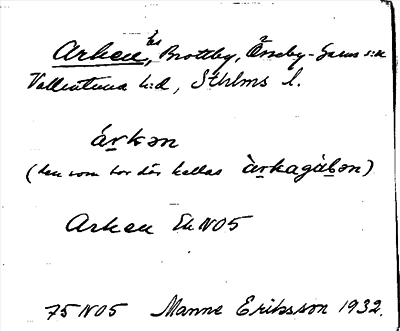 Es
Arken, Brottby, Össeby-Garns s:n
Vallentuna h:d, Sthlms l.
árkən
(den som bor där kallas àrkagùbən)
Arken Ek N05
75 N05 Manne Eriksson 1932.